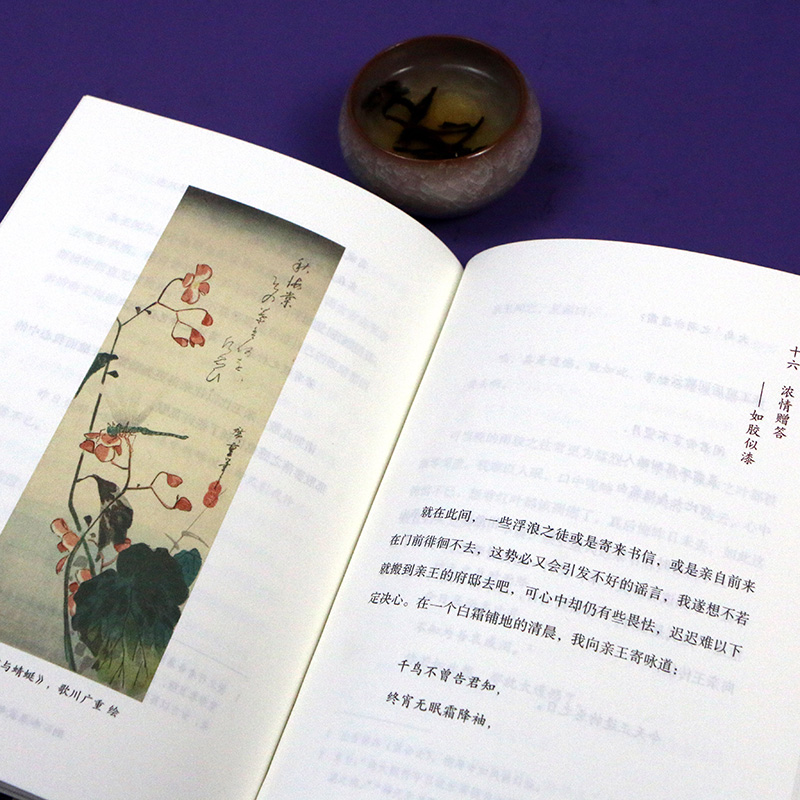 秋海棠
与蜻蜓》，歌川广重 绘
十六 浓情赠答
——如胶似漆
就在此间，一些浮浪之徒或是寄来书信，或是亲自前来
在门前徘徊不去，这势必又会引发不好的谣言，我遂想不若
就搬到亲王的府邸去吧，可心中却仍有些畏怯，迟迟难以下
定决心。在一个白霜铺地的清晨，我向亲王寄咏道：
千鸟不曾告君知，
终宵无眠霜降袖，